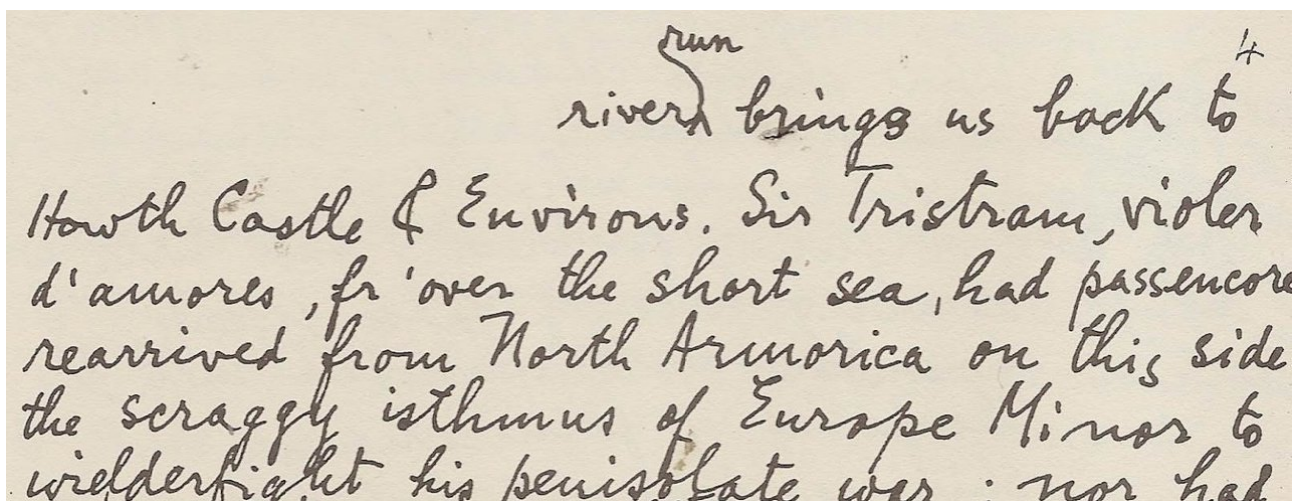 run
4
river brings us back to
Howth Castle & Environs. Sir Tristram, violer
d'amores, fr'over the short sea, had passencore
rearrived from North Armorica on this side
the scraggy isthmus of Europe Minor to
wielderfight his penisolate war : nor had